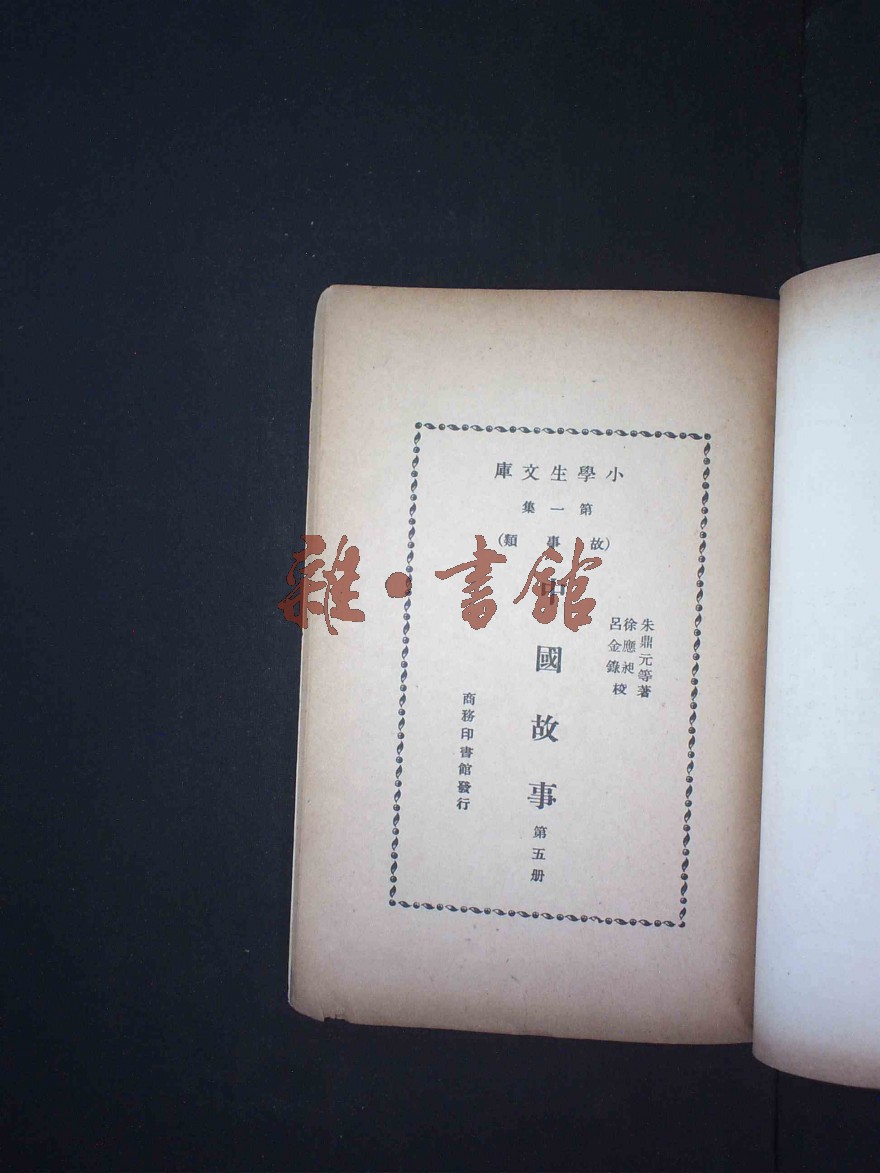 小學生文庫
第一集
(故事類)
朱鼎元等著
徐應昶
呂金錄校
中國故事
第五册
商務印書館發行
雜·書館